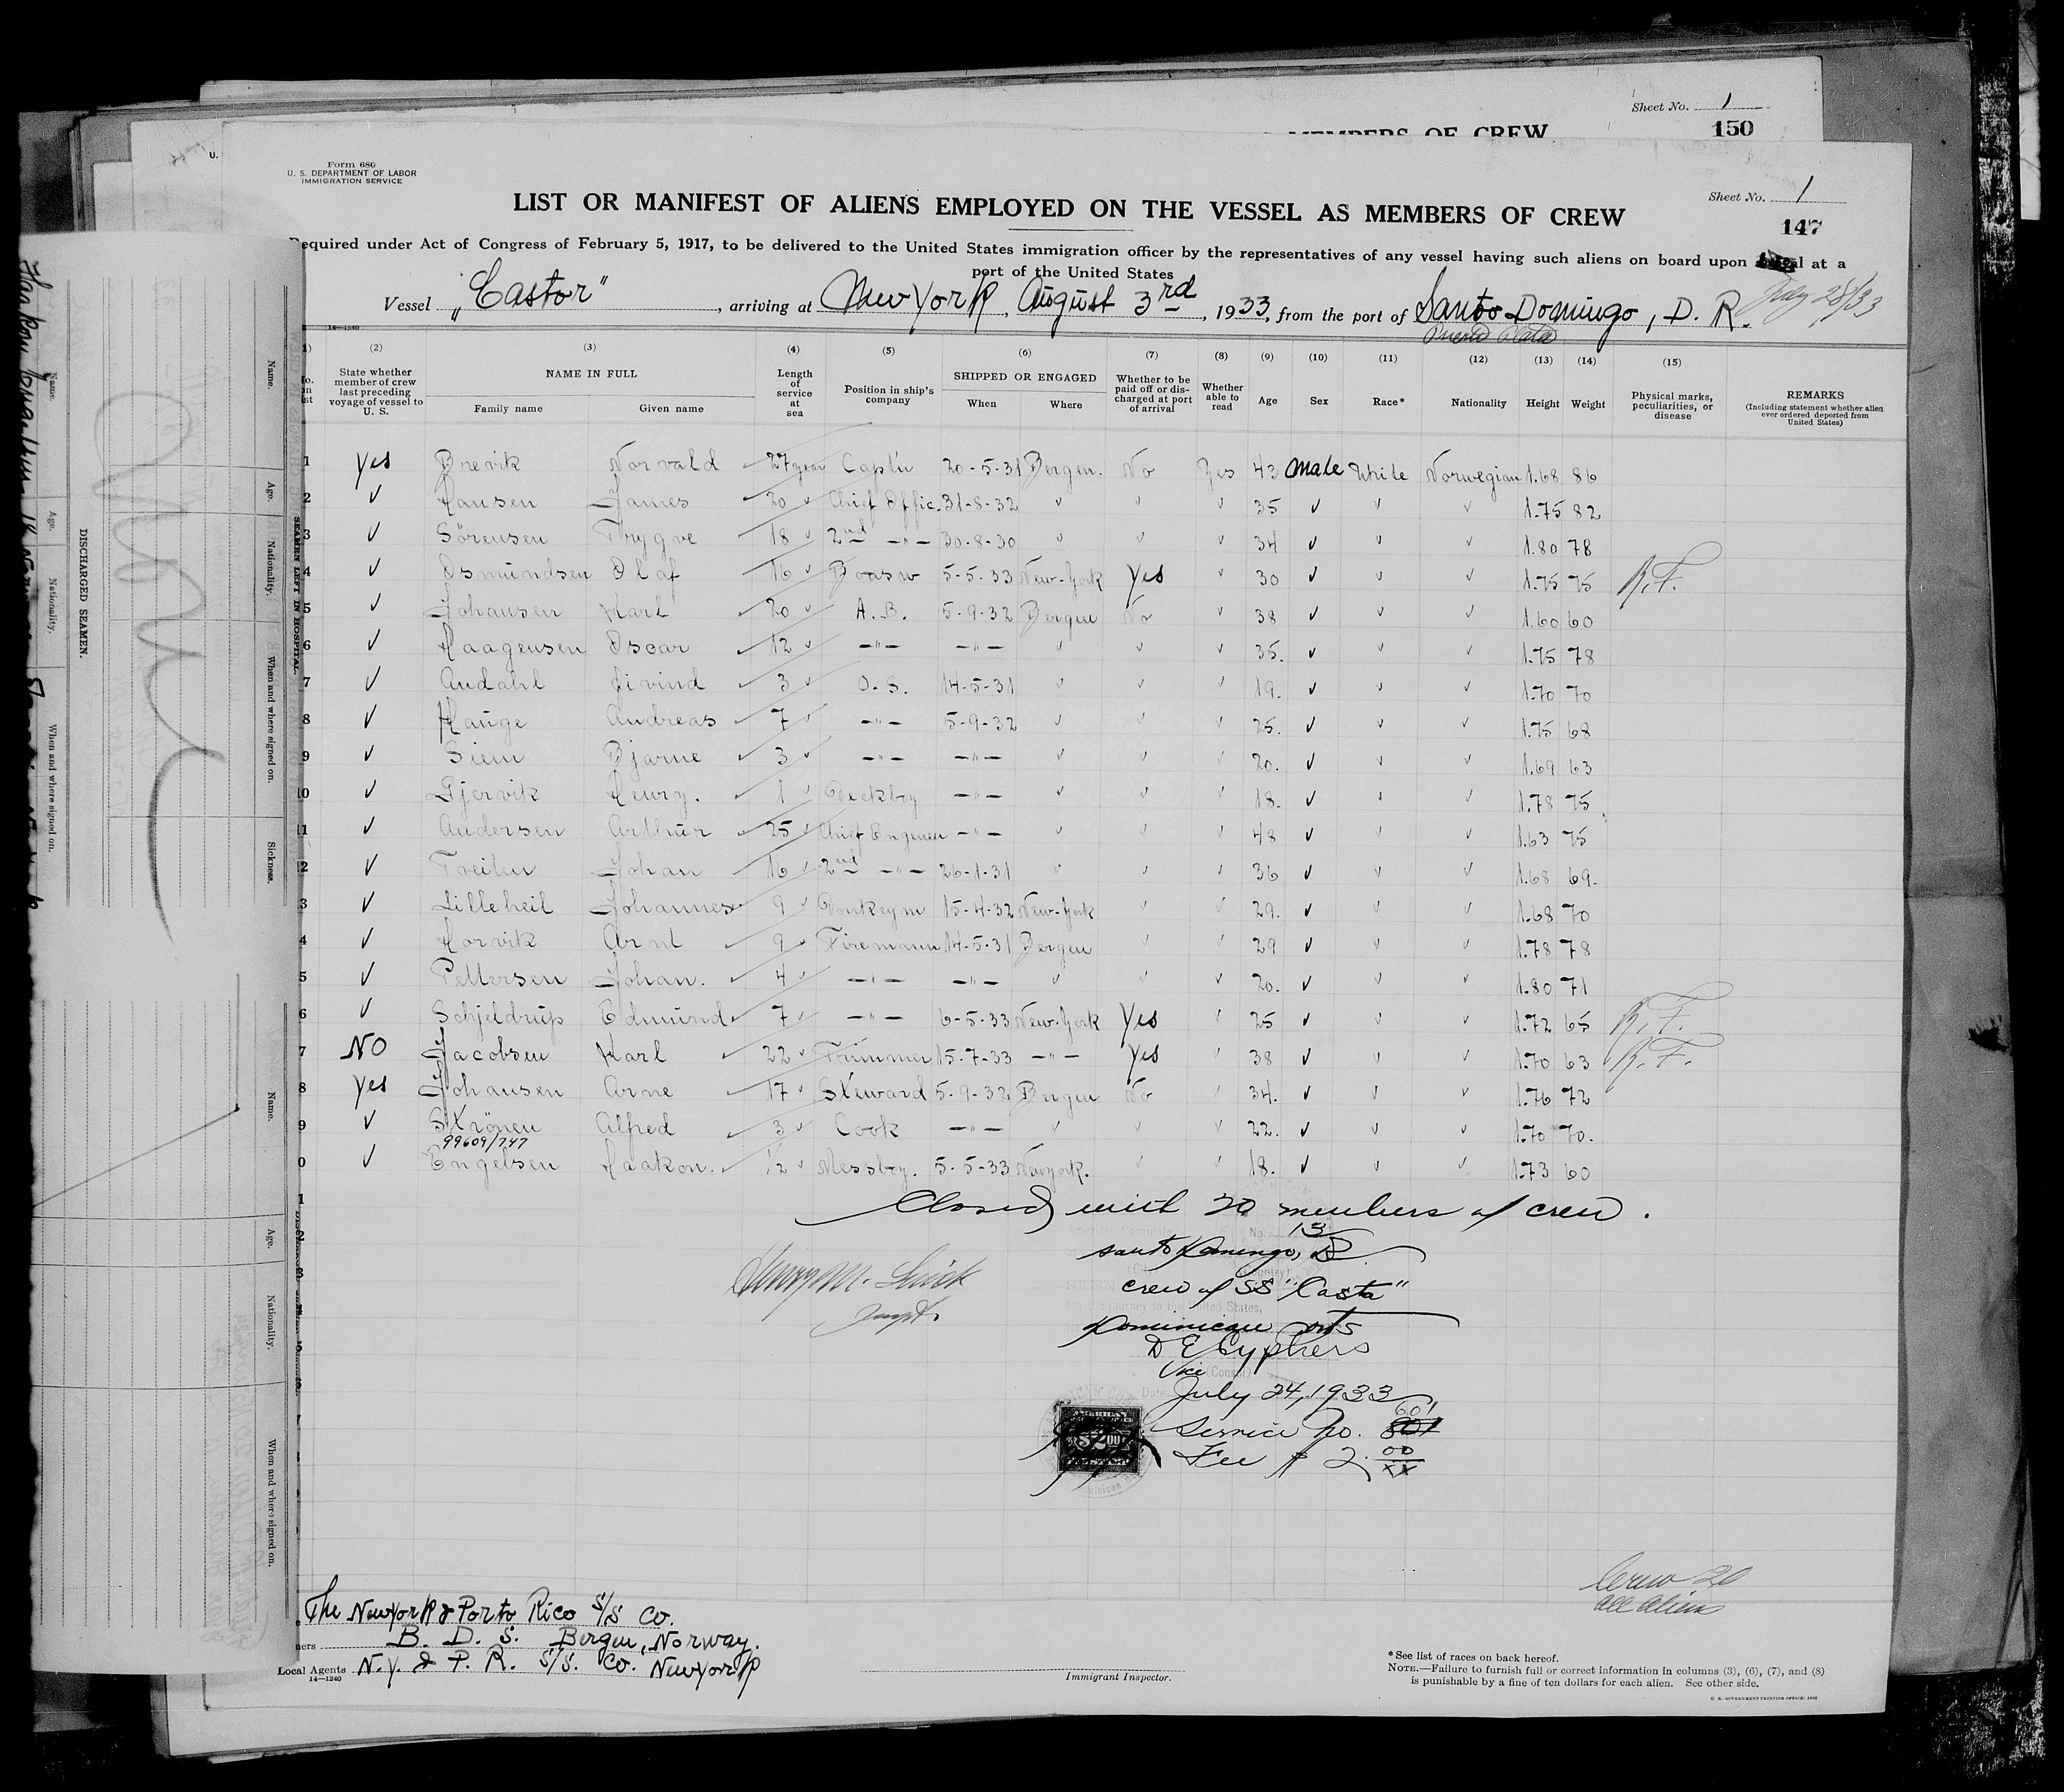 Sheet No. 1
MEMBERS OF CREW
150
U.
Form 680
U. S. DEPARTMENT OF LABOR
IMMIGRATION SERVICE
Sheet No. 1
LIST OR MANIFEST OF ALIENS EMPLOYED ON THE VESSEL AS MEMBERS OF CREW
147
Required under Act of Congress of February 5, 1917, to be delivered to the United States immigration officer by the representatives of any vessel having such aliens on board upon at a
port of the United States
Vessel „Castor", arriving at New York, August 3rd, 1933, from the port of Santo Domingo, D. R. July 28/33
Puerto Plata
14—1240
(2) (3) (4) (5) (6) (7) (8) (9) (10) (11) (12) (13) (14) (15)
State whether member of crew last preceding voyage of vessel to U. S. NAME IN FULL Family name Given name Length of service at sea Position in ship's company SHIPPED OR ENGAGED When Where Whether to be paid off or discharged at port of arrival Whether able to read Age Sex Race* Nationality Height Weight Physical marks, peculiarities, or disease REMARKS (Including statement whether alien ever ordered deported from United States)
1 Yes Brevik Norvald 27 year Capt'n 20-5-31 Bergen. No Yes 43 Male White Norwegian 1.68 86
2 ✓ Hansen James 20 ✓ Chief Offic. 31-8-32 ✓ ✓ ✓ 35 ✓ ✓ ✓ 1.75 82
3 ✓ Sörensen Trygve 18 ✓ 2nd —"— 30-8-30 ✓ ✓ ✓ 34 ✓ ✓ ✓ 1.80 78
4 ✓ Osmundsen Olaf 16 ✓ Boasw 5-5-33 New-York Yes ✓ 30 ✓ ✓ ✓ 1.75 75 R.F.
5 ✓ Johansen Karl 20 ✓ A.B. 5-9-32 Bergen No ✓ 38 ✓ ✓ ✓ 1.60 60
6 ✓ Haagensen Oscar 12 ✓ —"— —"— ✓ ✓ ✓ 35. ✓ ✓ ✓ 1.75 78
7 ✓ Andahl Eivind 3 ✓ O.S. 14-5-31 ✓ ✓ ✓ 19. ✓ ✓ ✓ 1.70 70
8 ✓ Hauge Andreas 7 ✓ —"— 5-9-32 ✓ ✓ ✓ 25. ✓ ✓ ✓ 1.75 68
9 ✓ Siem Bjarne 3 ✓ —"— —"— ✓ ✓ ✓ 20. ✓ ✓ ✓ 1.69 63
10 ✓ Gjervik Henry. 1 ✓ Deckboy —"— ✓ ✓ ✓ 18. ✓ ✓ ✓ 1.78 75
11 ✓ Andersen Arthur 25 ✓ Chief Engineer —"— ✓ ✓ 48 ✓ ✓ ✓ 1.63 75
2 ✓ Treiten Johan 16 ✓ 2nd —"— 26-1-31 ✓ ✓ ✓ 36 ✓ ✓ ✓ 1.68 69.
3 ✓ Lilleheil Johannes 9 ✓ Donkeym 15-4-32 New-York ✓ ✓ 29. ✓ ✓ ✓ 1.68 70
4 ✓ Horvik Arnt 9 ✓ Firemann 14-5-31 Bergen ✓ ✓ 29 ✓ ✓ ✓ 1.78 78
5 ✓ Pettersen Johan. 4 ✓ —"— —"— ✓ ✓ ✓ 20. ✓ ✓ ✓ 1.80 71
6 ✓ Schjeldrup Edmund 7 ✓ —"— 6-5-33 New-York Yes ✓ 25 ✓ ✓ ✓ 1.72 65 R.F.
7 NO Jacobsen Karl 22 ✓ Trimmer 15-7-33 —"— Yes ✓ 38 ✓ ✓ ✓ 1.70 63 R.F.
8 Yes Johansen Arne 17 ✓ Steward 5-9-32 Bergen No ✓ 34. ✓ ✓ ✓ 1.76 72
9 ✓ Strönen Alfred 3 ✓ Cook —"— ✓ ✓ ✓ 22. ✓ ✓ ✓ 1.70 70.
99609/747
0 ✓ Engelsen Haakon. 1/2 ✓ Messboy. 5-5-33 Newyork. ✓ ✓ 18. ✓ ✓ ✓ 1.73 60
Closed with 20 members of crew.
No. 13
Santo Domingo, D
crew of SS "Casta"
For the journey to the United States,
Dominican
D E Cyphers
Vice (Consul)
July 24, 1933
601
Service No. 801
Fee $ 2.00
$2.00
Henry M.
Crew 20
all aliens
The New York & Porto Rico S/S Co.
B. D. S. Bergen, Norway.
Local Agents N.Y. & P. R. S/S. Co. New York
14—1240
Immigrant Inspector.
*See list of races on back hereof.
NOTE.—Failure to furnish full or correct information in columns (3), (6), (7), and (8)
is punishable by a fine of ten dollars for each alien. See other side.
U. S. GOVERNMENT PRINTING OFFICE: 1932
DISCHARGED SEAMEN.
Name. Age. Nationality. When and where signed on.
SEAMEN LEFT IN HOSPITAL.
Name. Age. Nationality. When and where signed on. Sickness.
None
Name. Age. Nationality. When and where signed on.